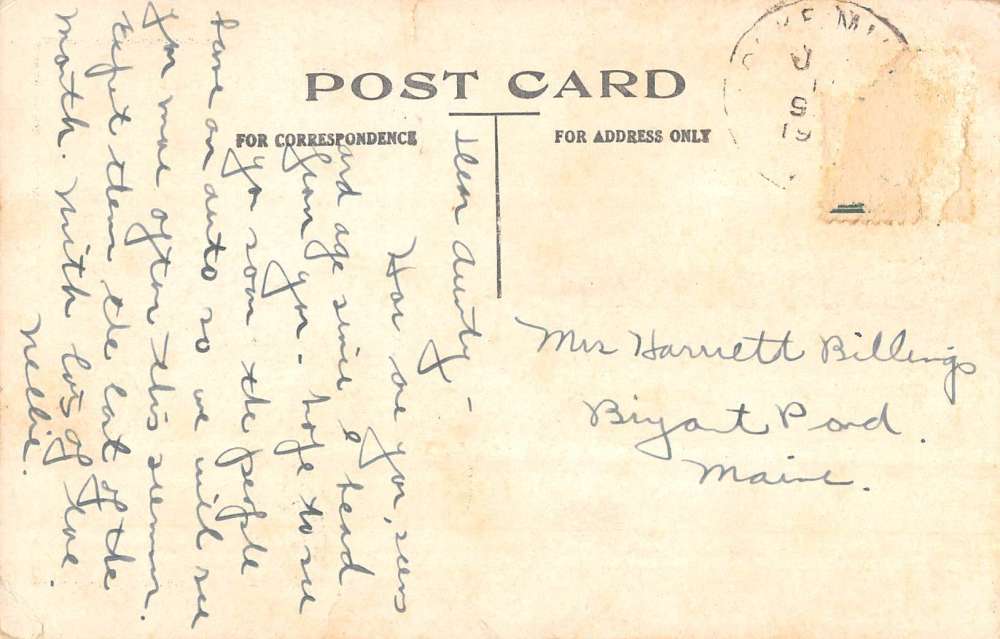 POST CARD
FOR CORRESPONDENCE
FOR ADDRESS ONLY
Dear Aunty -
How are you, seems
and age since I head
from you - hope to see
you soon the people
have an auto so we will see
you more often this summer.
expect them the last of the
month. With lots of love.
Nellie.
Mrs Harriett Billings
Bryant Pond.
Maine.